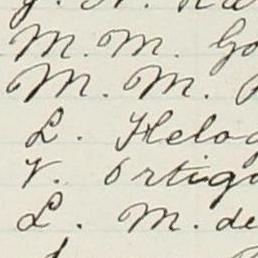 M. M. Go
M. M.
L. Helog
V. Ortigo
L. M. de